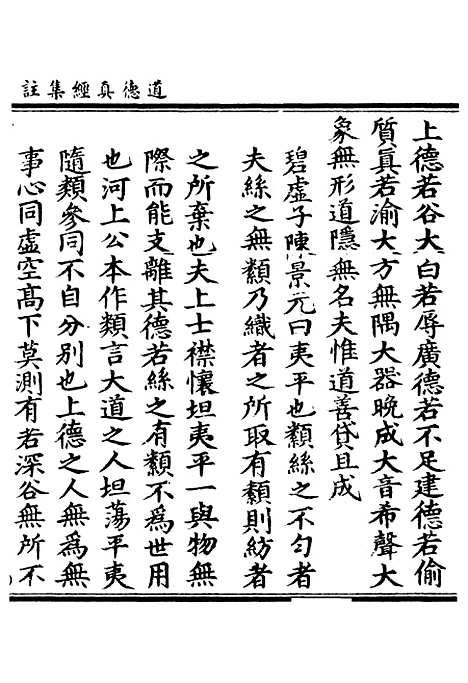 道德真經集註
上德若谷大白若辱廣德若不足建德若偷
質真若渝大方無隅大器晚成大音希聲大
象無形道隱無名夫惟道善貸且成
碧虛子陳景元曰夷平也纇絲之不勻者
夫絲之無纇乃織者之所取有纇則紡者
之所棄也夫上士襟懷坦夷平一與物無
際而能支離其德若絲之有纇不爲世用
也河上公本作類言大道之人坦蕩平夷
隨類參同不自分別也上德之人無爲無
事心同虛空高下莫測有若深谷無所不